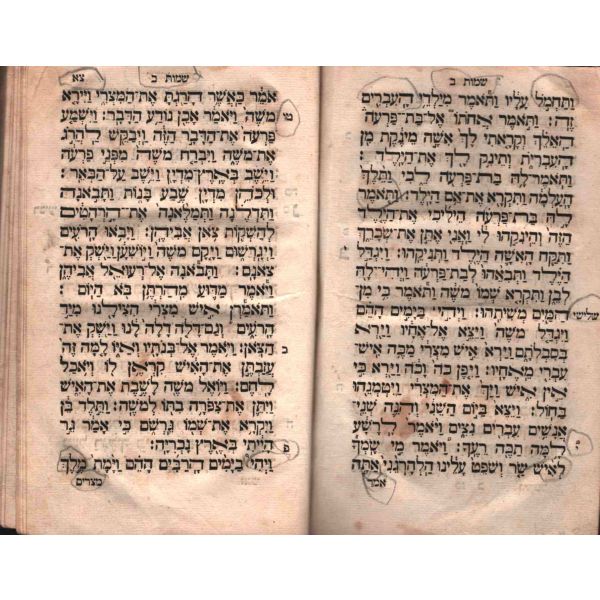 שמות ב
ותחמל עליו ותאמר מילדי העברים
זה: ותאמר אחתו אל־בת־פרעה
האלך וקראתי לך אשה מינקת מן
העברית ותינק לך את־הילד:
ותאמר־לה בת־פרעה לכי ותלך
העלמה ותקרא את־אם הילד: ותאמר
לה בת־פרעה היליכי את־הילד
הזה והינקהו לי ואני אתן את־שכרך
ותקח האשה הילד ותניקהו: ויגדל
הילד ותבאהו לבת־פרעה ויהי־לה
לבן ותקרא שמו משה ותאמר כי מן
שלישי
המים משיתהו: ויהי בימים ההם
ויגדל משה ויצא אל־אחיו וירא
בסבלתם וירא איש מצרי מכה איש
עברי מאחיו: ויפן כה וכה וירא כי
אין איש ויך את־המצרי ויטמנהו
בחול: ויצא ביום השני והנה שני־
אנשים עברים נצים ויאמר לרשע
י
למה תכה רעך: ויאמר מי שמך
לאיש שר ושפט עלינו הלהרגני אתה
אמר
שמות ב צא
אמר כאשר הרגת את־המצרי ויירא
טו
משה ויאמר אכן נודע הדבר: וישמע
פרעה את־הדבר הזה ויבקש להרג
את־משה ויברח משה מפני פרעה
וישב בארץ־מדין וישב על־הבאר:
ולכהן מדין שבע בנות ותבאנה
ותדלנה ותמלאנה את־הרהטים
להשקות צאן אביהן: ויבאו הרעים
ויגרשום ויקם משה ויושען וישק את־
צאנם: ותבאנה אל־רעואל אביהן
ויאמר מדוע מהרתן בא היום:
ותאמרן איש מצרי הצילנו מיד
הרעים וגם־דלה דלה לנו וישק את־
כ
הצאן: ויאמר אל־בנתיו ואיו למה זה
עזבתן את־האיש קראן לו ויאכל
לחם: ויואל משה לשבת את־האיש
ויתן את־צפרה בתו למשה: ותלד בן
ויקרא את־שמו גרשם כי אמר גר
הייתי בארץ נכריה:
פ
ויהי בימים הרבים ההם וימת מלך
מצרים